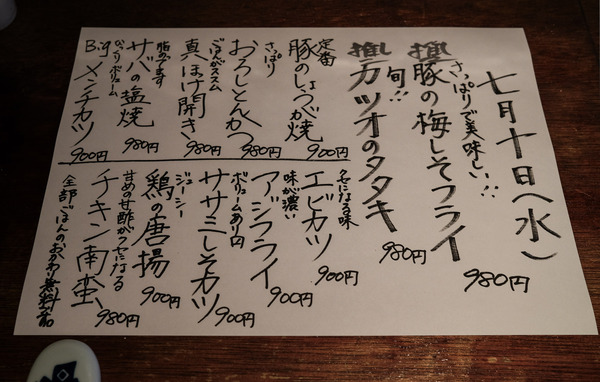 七月十日(水)
さっぱりで美味しい!!
推 豚の梅しそフライ 980円
旬!!
推 カツオのタタキ 980円
定番
豚のしょうが焼 900円
さっぱり
おろしとんかつ 980円
ごはんがススム
真ほっけ開き 980円
脂のってます
サバの塩焼 980円
びっくりボリューム
Big メンチカツ 900円
クセになる味
エビカツ 900円
味が濃い
アジフライ 900円
ボリュームあり
ササミしそカツ 900円
ジューシー
鶏の唐揚 900円
甘めの甘酢がクセになる
チキン南蛮 980円
全部ごはんのおかわり無料